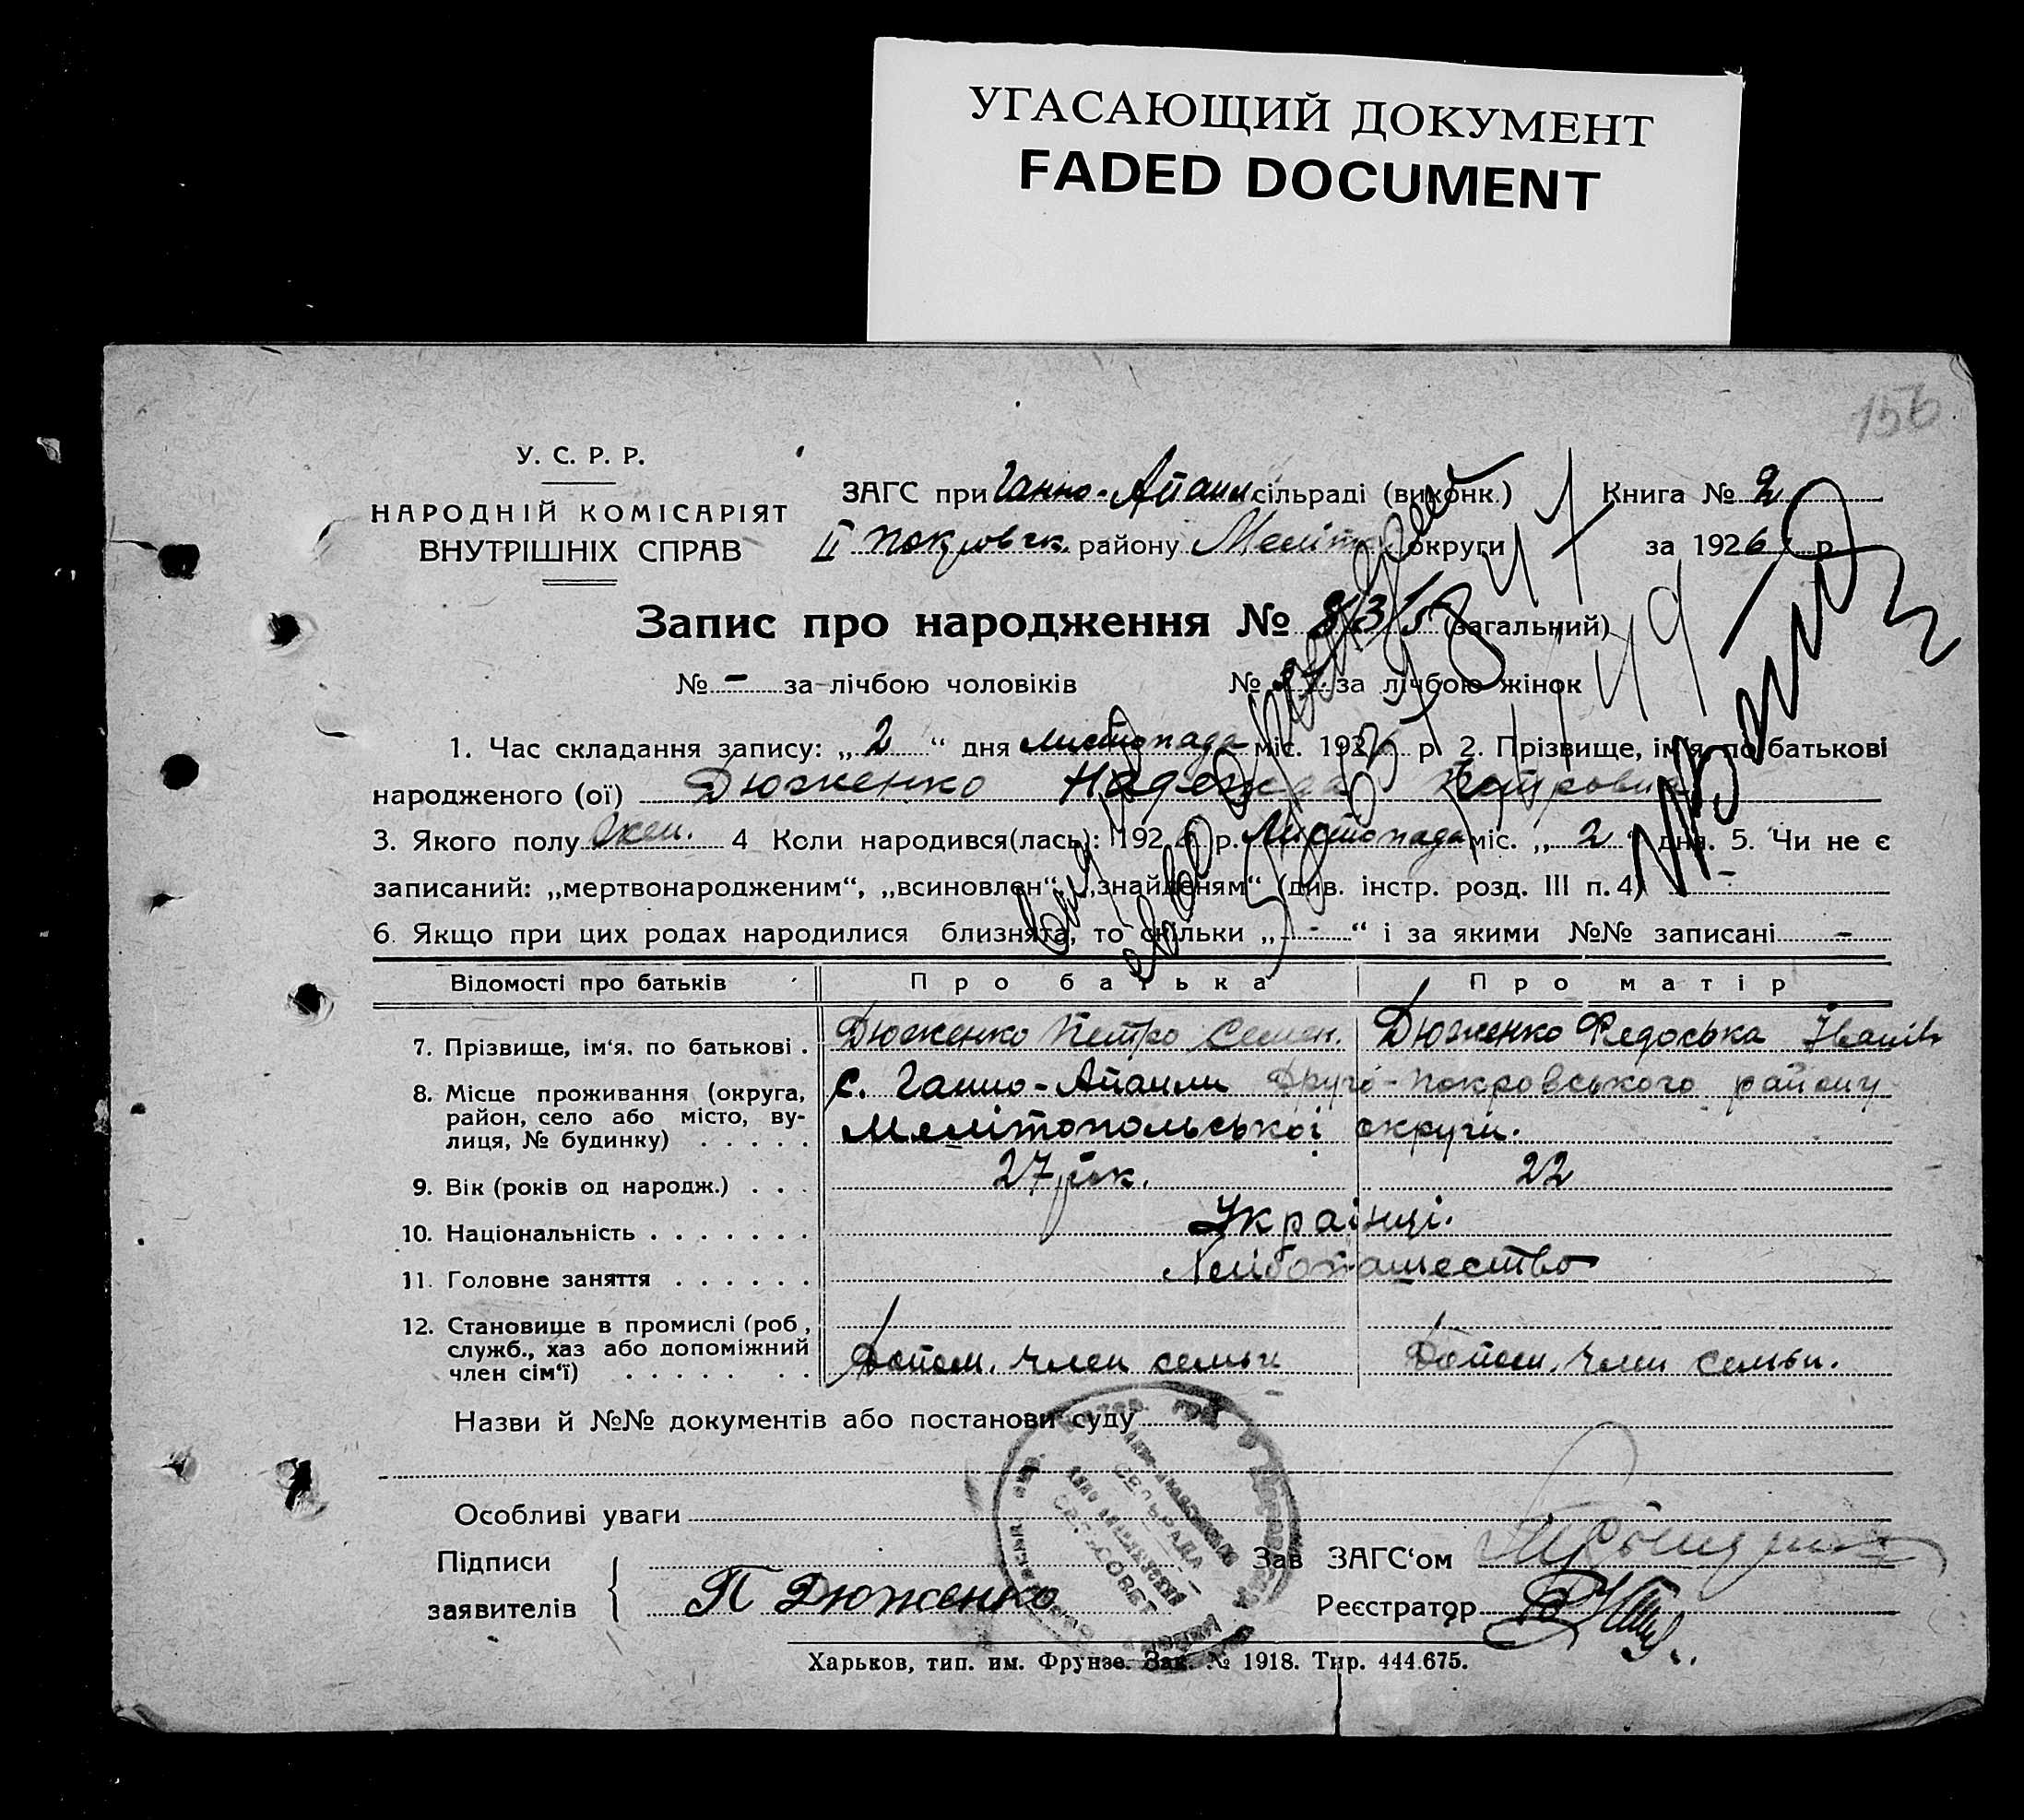 УГАСАЮЩИЙ ДОКУМЕНТ
FADED DOCUMENT
156
У. С. Р. Р.
НАРОДНІЙ КОМІСАРІЯТ
ВНУТРІШНІХ СПРАВ
ЗАГС при Ганно-Апанли сільраді (виконк.) Книга № 2
II Покровськ. району Меліт округи за 1926 р.
Запис про народження № (загальний)
№ - за лічбою чоловіків № 37 за лічбою жінок
1. Час складання запису: „ 2 “ дня листопада міс. 1926 р 2. Прізвище, ім'я, по батькові
народженого (ої) Дюженко Надежда Петровна
3. Якого полу жен. 4 Коли народився(лась): 1926 р. Листопада міс. „ 2 “ дня. 5. Чи не є
записаний: „мертвонародженим“, „всиновлен“, „знайденям“ (див. інстр. розд. III п. 4) -
6. Якщо при цих родах народилися близнята, то скільки „ - “ і за якими №№ записані -
Відомості про батьків Про батька Про матір
7. Прізвище, ім'я, по батькові . Дюженко Петро Семен. Дюженко Федоська Іванів
8. Місце проживання (округа, с. Ганно-Апанли Друго-Покровського району
район, село або місто, ву-
лиця, № будинку) . . . . . Мелітопольської округи.
9. Вік (років од народж.) . . . 27 рок. 22
10. Національність . . . . . . . Українці.
11. Головне заняття . . . . . . Хлібопашество
12. Становище в промислі (роб,
служб., хаз або допоміжний Допом. член семьи Допом. член семьи.
член сім'ї) . . . . . . .
Назви й №№ документів або постанови суду
Особливі уваги
Підписи Зав ЗАГС'ом
заявителів П Дюженко Реєстратор
СЕЛЬРАДА
Харьков, тип. им. Фрунзе. Зак. № 1918. Тир. 444.675.